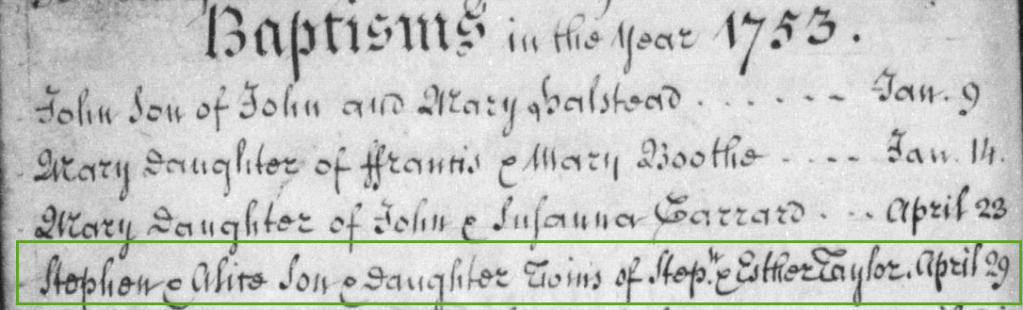 Baptisms in the Year 1753.
John Son of John and Mary Halstead . . . . . . . Jan. 9
Mary Daughter of ffrancis & Mary Boothe . . . . Jan. 14.
Mary Daughter of John & Susanna Garrard . . . April 23
Stephen & Alice Son & Daughter Twins of Step.n & Esther Taylor. April 29